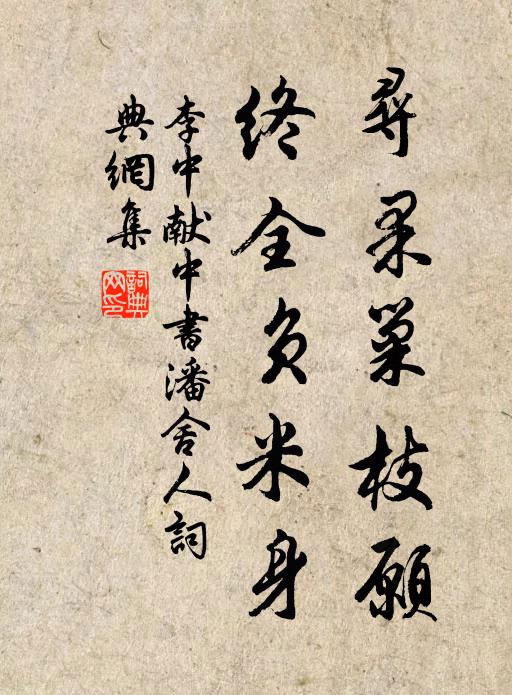 尋果巢枝願
終全負米身
李中献中書潘舍人詞
典網集
詞典
网印